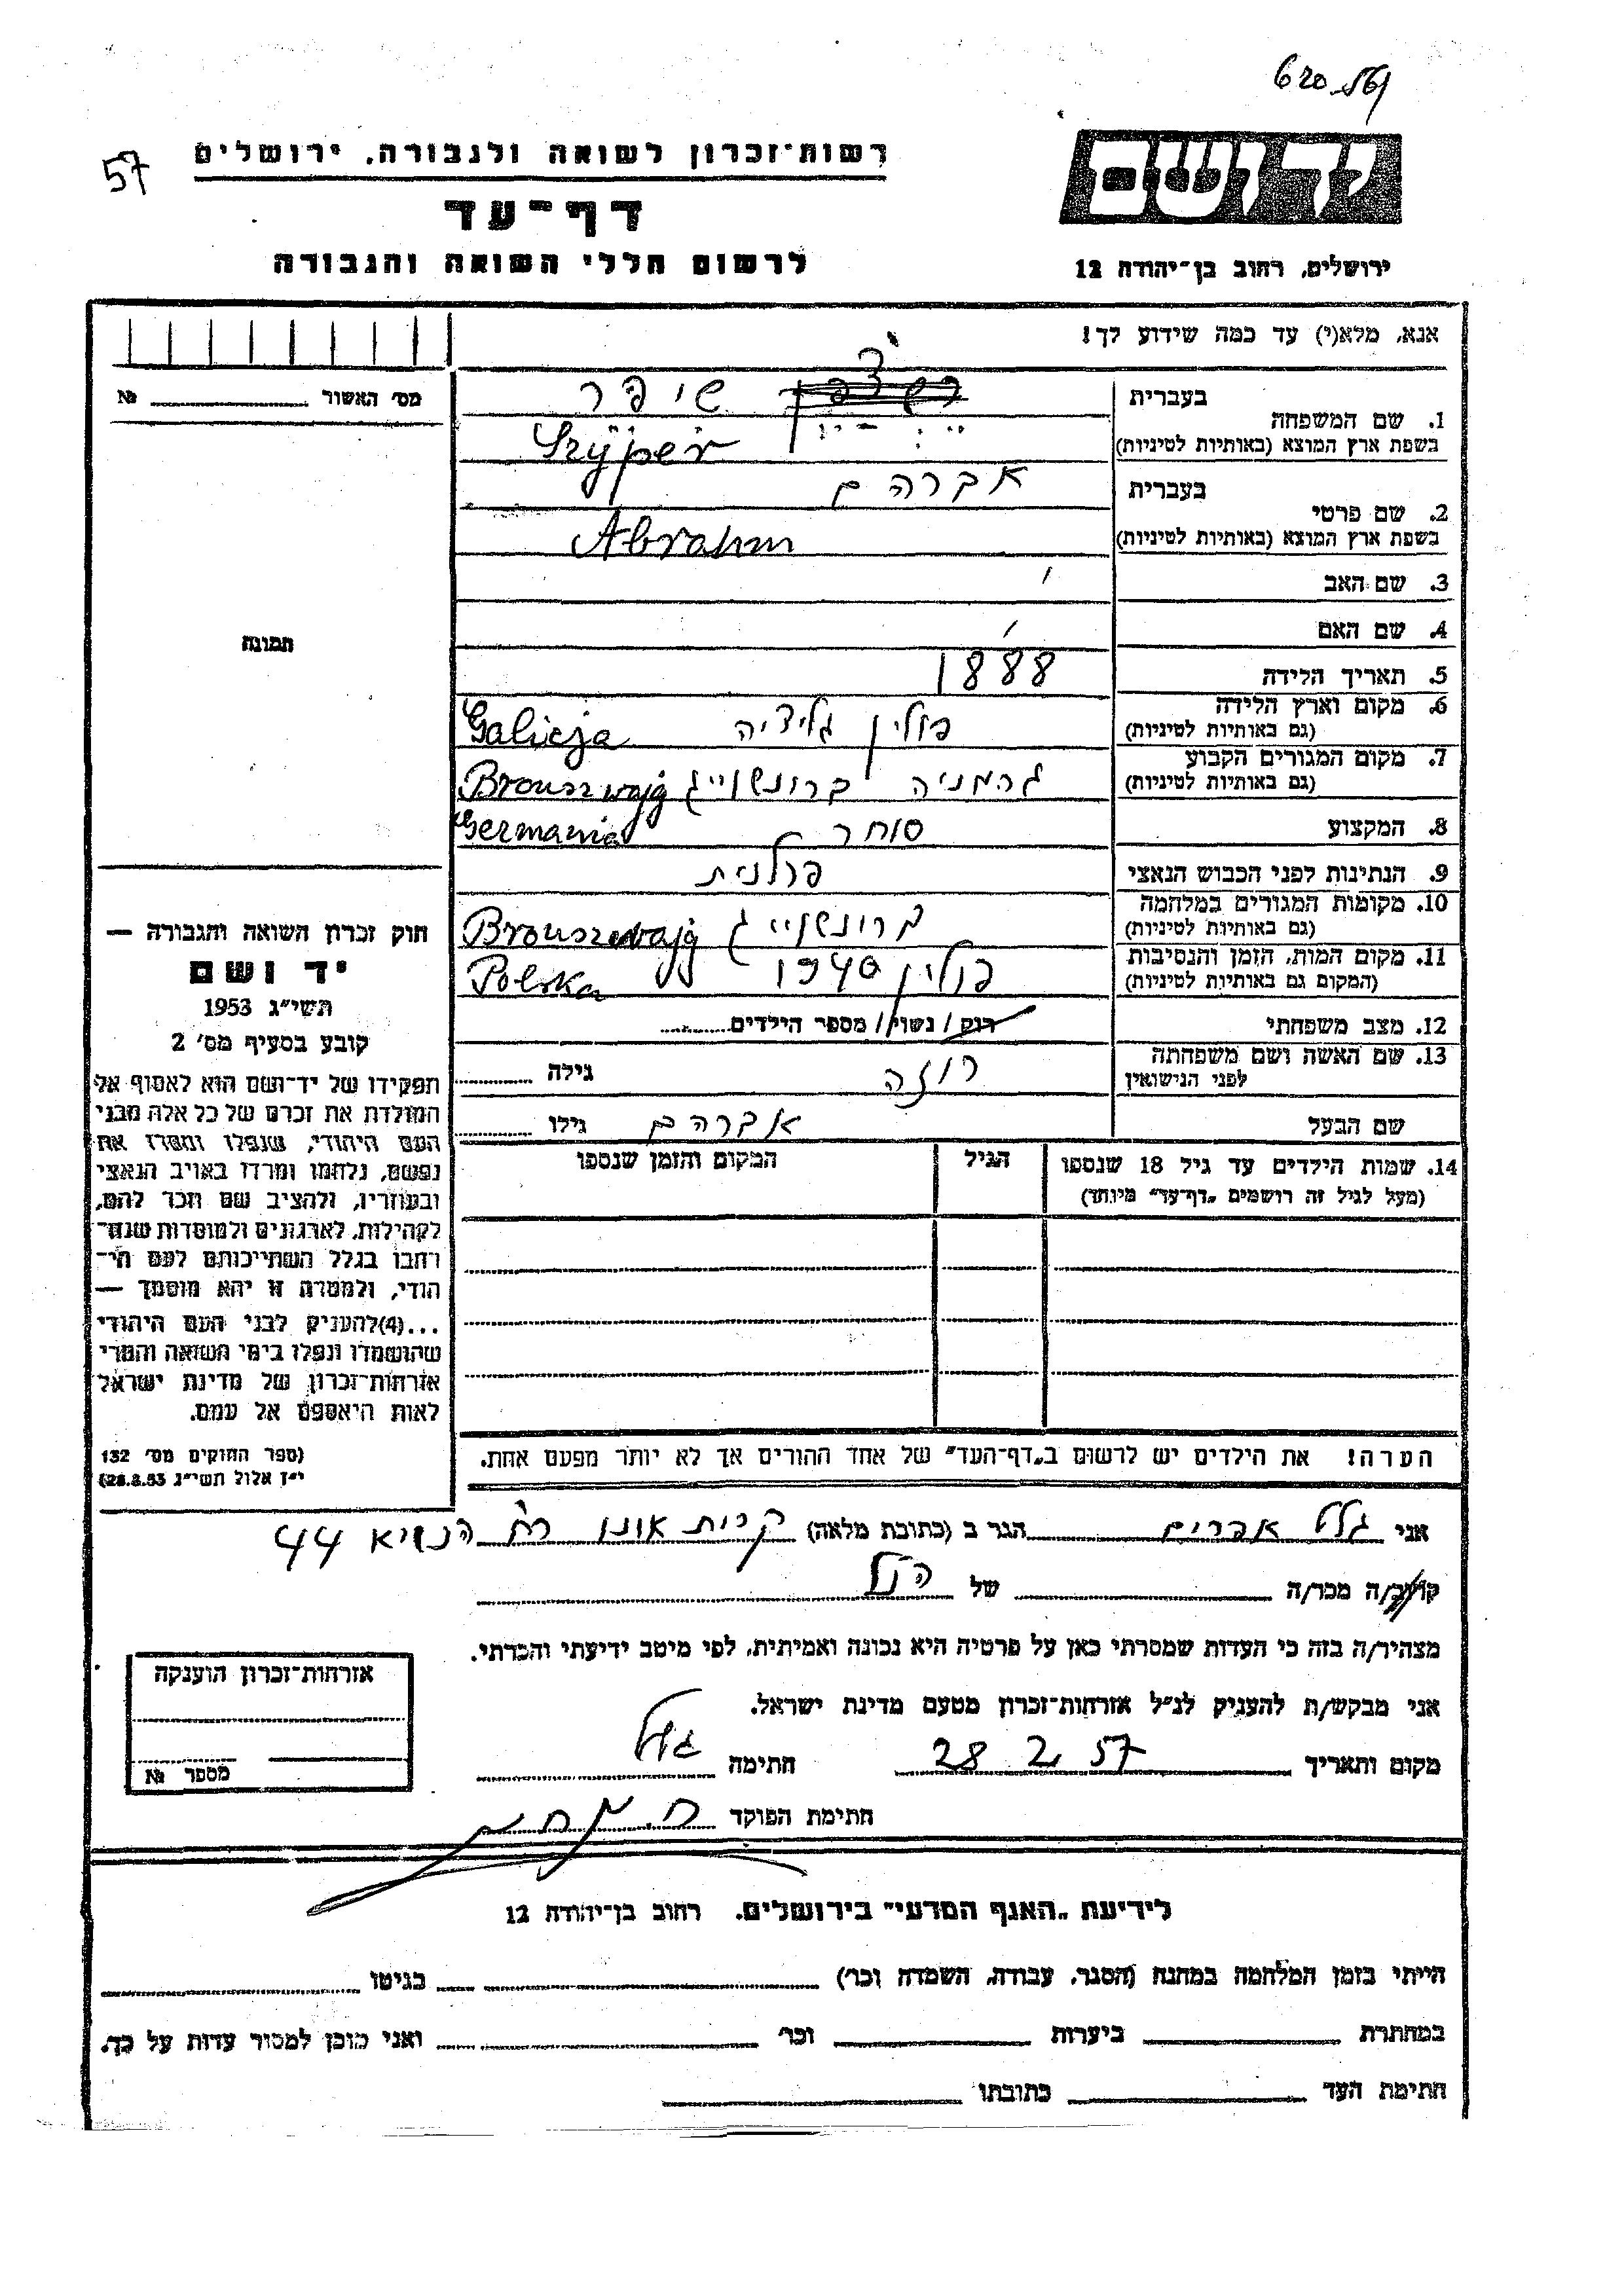 620.561
57
רשות־זכרון לשואה ולגבורה, ירושלים
ידושם
דף־עד
לרשום חללי השואה והגבורה
ירושלים, רחוב בן־יהודה 12
אנא, מלא(י) עד כמה שידוע לך!
מס׳ האשור № 
1. שם המשפחה
בעברית שיפר
בשפת ארץ המוצא (באותיות לטיניות) Szyjper
2. שם פרטי
בעברית אברהם
בשפת ארץ המוצא (באותיות לטיניות) Abrahm
3. שם האב
4. שם האם
תמונה
5. תאריך הלידה 1888
6. מקום וארץ הלידה (גם באותיות לטיניות) פולין גליציה Galicja
7. מקום המגורים הקבוע (גם באותיות לטיניות) גרמניה ברונשוייג Brouszwajg
Germania
8. המקצוע סוחר
9. הנתינות לפני הכבוש הנאצי פולנית
10. מקומות המגורים במלחמה (גם באותיות לטיניות) ברונשוייג Brouszwajg
11. מקום המות, הזמן והנסיבות (המקום גם באותיות לטיניות) פולין 1940 Polska
12. מצב משפחתי רוק/ נשוי/ מספר הילדים
13. שם האשה ושם משפחתה לפני הנישואין רוזה גילה
שם הבעל אברהם גילו
14. שמות הילדים עד גיל 18 שנספו (מעל לגיל זה רושמים „דף־עד״ מיוחד)
הגיל
המקום והזמן שנספו
הערה! את הילדים יש לרשום ב„דף־העד״ של אחד ההורים אך לא יותר מפעם אחת.
חוק זכרון השואה והגבורה —
יד ושם
תשי״ג 1953
קובע בסעיף מס׳ 2
תפקידו של יד־ושם הוא לאסוף אל
המולדת את זכרם של כל אלה מבני
העם היהודי, שנפלו ומסרו את
נפשם, נלחמו ומרדו באויב הנאצי
ובעוזריו, ולהציב שם וזכר להם,
לקהילות, לארגונים ולמוסדות שנח־
רחבו בגלל השתייכותם לעם הי־
הודי, ולמטרה זו יהא מוסמך —
...(4)להעניק לבני העם היהודי
שהושמדו ונפלו בימי השואה והמרי
אזרחות־זכרון של מדינת ישראל
לאות היאספם אל עמם.
(ספר החוקים מס׳ 132
י״ז אלול תשי״ג 28.8.53)
אני גלט אפרים הגר ב (כתובת מלאה) קרית אונו רח׳ הנשיא 44
קרוב/ה מכר/ה של הנ״ל
מצהיר/ה בזה כי העדות שמסרתי כאן על פרטיה היא נכונה ואמיתית, לפי מיטב ידיעתי והכרתי.
אני מבקש/ת להעניק לנ״ל אזרחות־זכרון מטעם מדינת ישראל.
מקום ותאריך 28 2 57 חתימה
חתימת הפוקד
אזרחות־זכרון הוענקה
מספר №
לידיעת „האגף המדעי״ בירושלים, רחוב בן־יהודה 12
הייתי בזמן המלחמה במחנה (הסגר, עבודה, השמדה וכר׳) בגיטו
במחתרת ביערות וכר׳ ואני מוכן למסור עדות על כך.
חתימת העד כתובתו